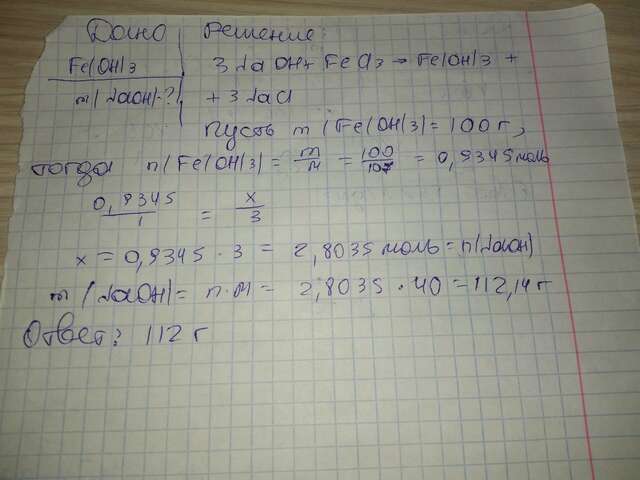 Дано
Решение:
Fe(OH)3
3 NaOH + FeCl3 → Fe(OH)3 +
m(NaOH)-?
+ 3 NaCl
Пусть m (Fe(OH)3) = 100 г,
тогда n(Fe(OH)3) = m/M = 100/107 = 0,9345 моль
0,9345/1 = x/3
x = 0,9345 · 3 = 2,8035 моль = n(NaOH)
m (NaOH) = n·M = 2,8035 · 40 = 112,14 г
Ответ: 112 г